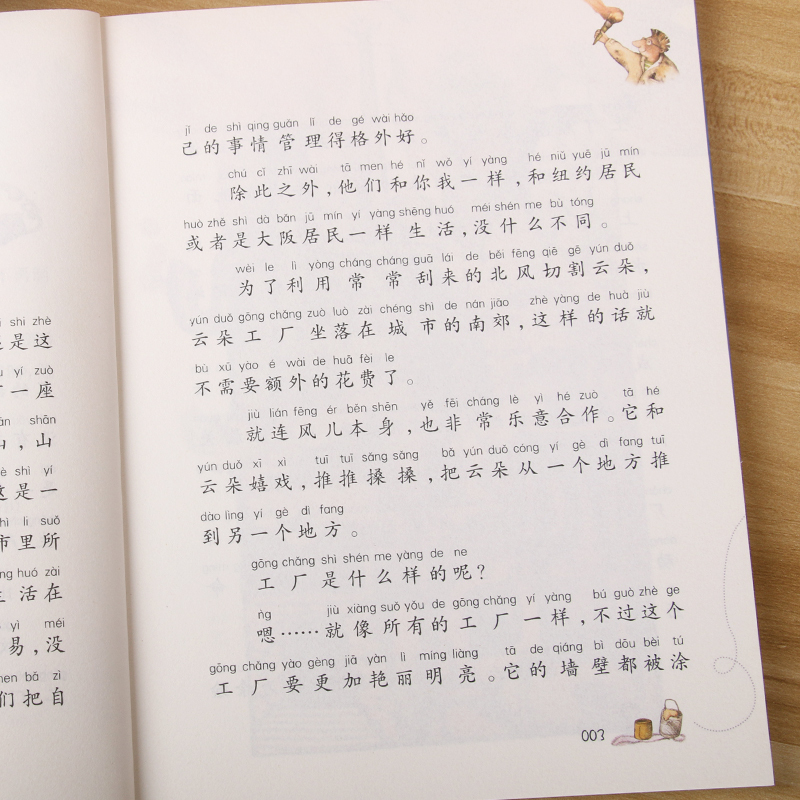 shi zhè
是这
yí zuò
一座
shān
山,山
shì yí
这是一
lǐ suǒ
市里所
huó zài
生活在
yì méi
易,没
men bǎ zì
们把自
jǐ de shì qing guǎn lǐ de gé wài hǎo
己的事情管理得格外好。
chú cǐ zhī wài tā men hé nǐ wǒ yí yàng hé niǔ yuē jū mín
除此之外,他们和你我一样,和纽约居民
huò zhě shì dà bǎn jū mín yí yàng shēng huó méi shén me bù tóng
或者是大阪居民一样生活,没什么不同。
wèi le lì yòng cháng cháng guā lái de běi fēng qiē gē yún duǒ
为了利用常常刮来的北风切割云朵,
yún duǒ gōng chǎng zuò luò zài chéng shì de nán jiāo zhè yàng de huà jiù
云朵工厂坐落在城市的南郊,这样的话就
bù xū yào é wài de huā fèi le
不需要额外的花费了。
jiù lián fēng ér běn shēn yě fēi cháng lè yì hé zuò tā hé
就连风儿本身,也非常乐意合作。它和
yún duǒ xī xì tuī tuī sǎng sǎng bǎ yún duǒ cóng yí gè dì fang tuī
云朵嬉戏,推推搡搡,把云朵从一个地方推
dào lìng yí gè dì fang
到另一个地方。
gōng chǎng shì shén me yàng de ne
工厂是什么样的呢?
ǹg jiù xiàng suǒ yǒu de gōng chǎng yí yàng bú guò zhè ge
嗯……就像所有的工厂一样,不过这个
gōng chǎng yào gèng jiā yàn lì míng liàng tā de qiáng bì dōu bèi tú
工厂要更加艳丽明亮。它的墙壁都被涂
003